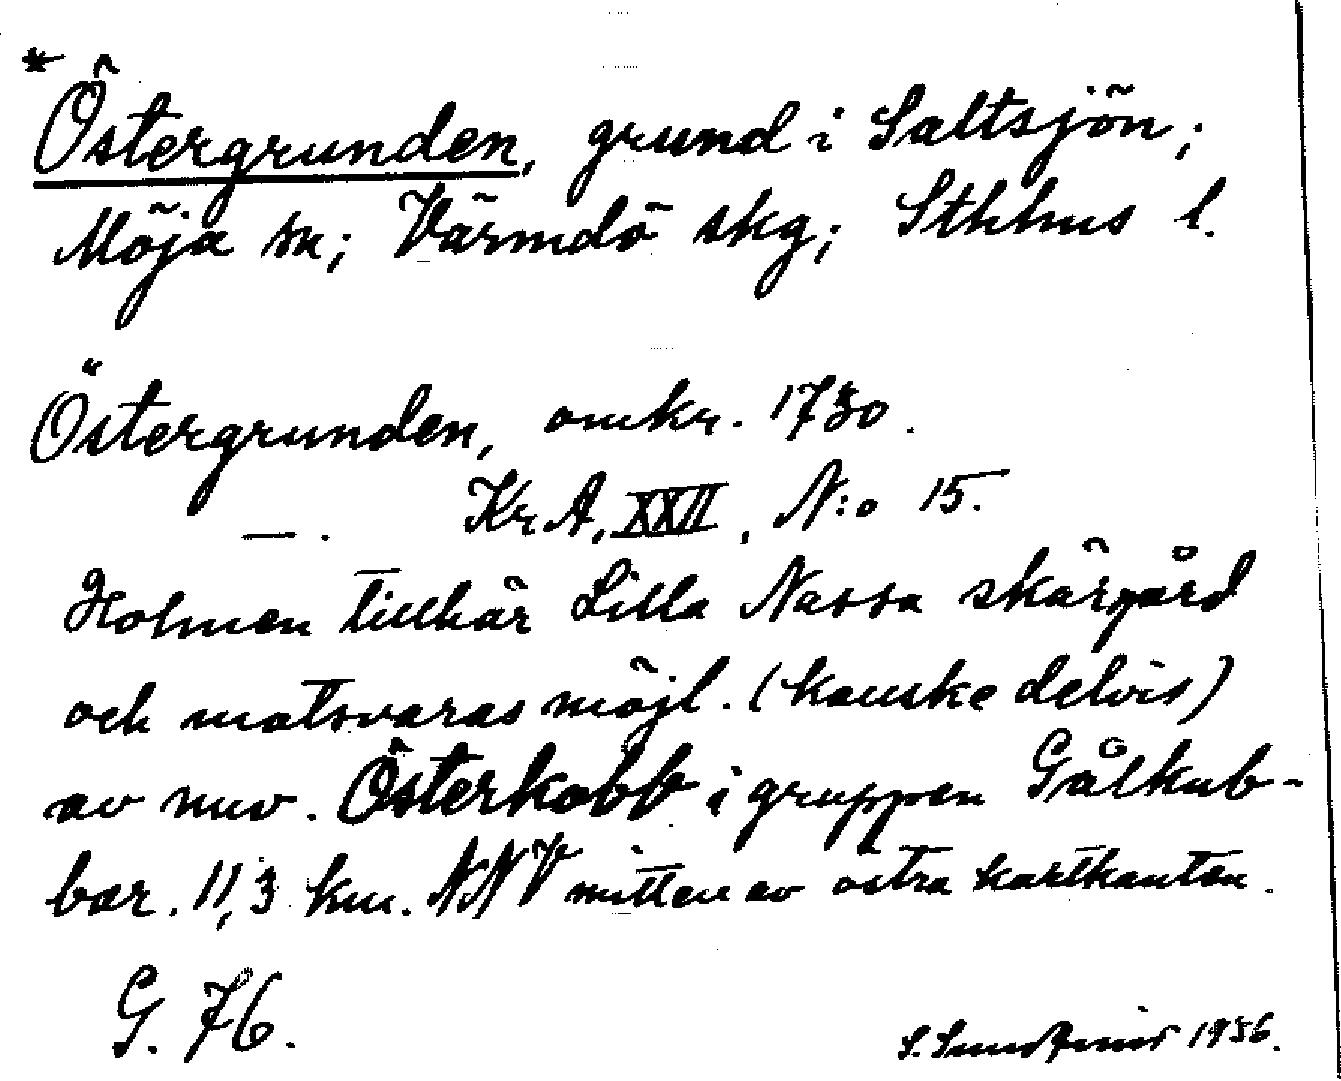 * Östergrunden, grund i Saltsjön;
Möja sn; Värmdö skg; Sthlms l.
Östergrunden, omkr. 1730.
—. Kr A, XXII, N:o 15.
Holmen tillhör Lilla Nassa skärgård
och motsvaras möjl. (kanske delvis)
av nuv. Österkobb i gruppen Gålkub-
bar. 11,3 km. NNV mitten av östra kartkanten.
G. 76.
S. 1936.